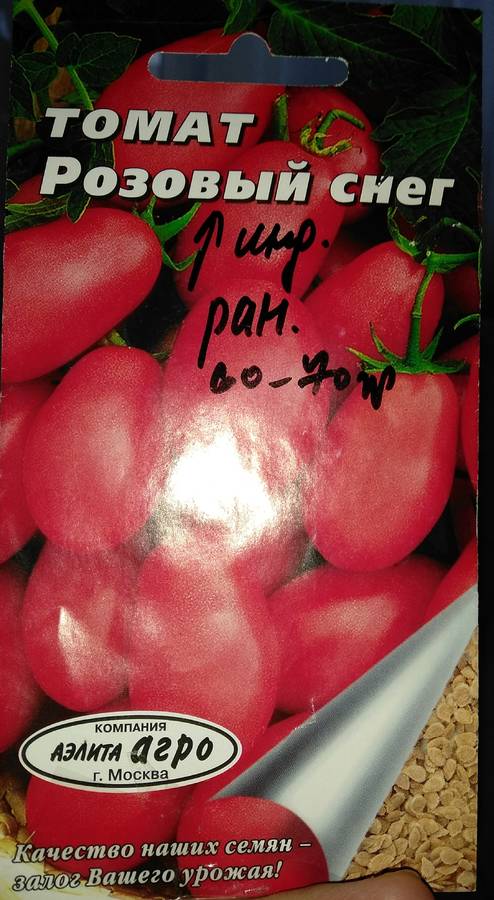 ТОМАТ
Розовый снег
инд.
ран.
60-70гр
КОМПАНИЯ
АЭЛИТА агро
г. Москва
Качество наших семян –
залог Вашего урожая!